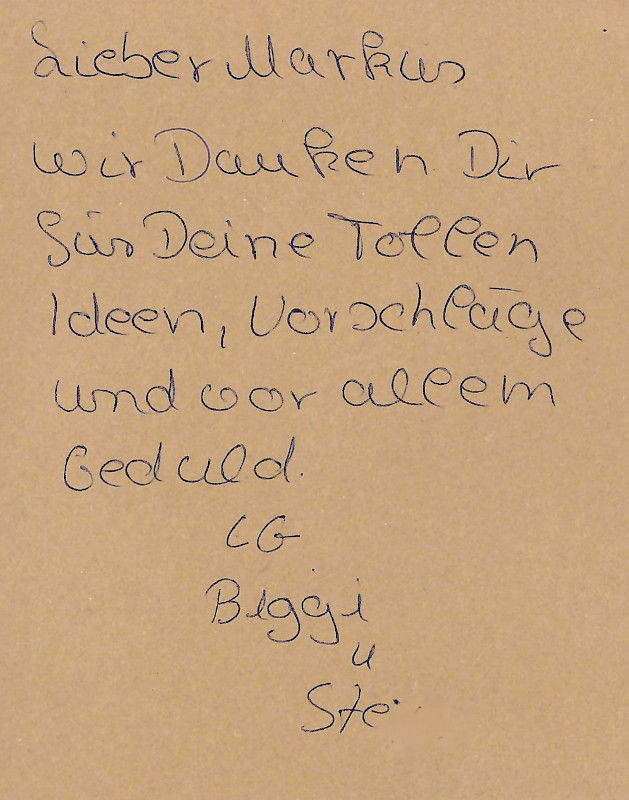 Lieber Markus
wir Danken Dir
für Deine Tollen
Ideen, Vorschläge
und vor allem
Geduld.
LG
Biggi
u
Ste